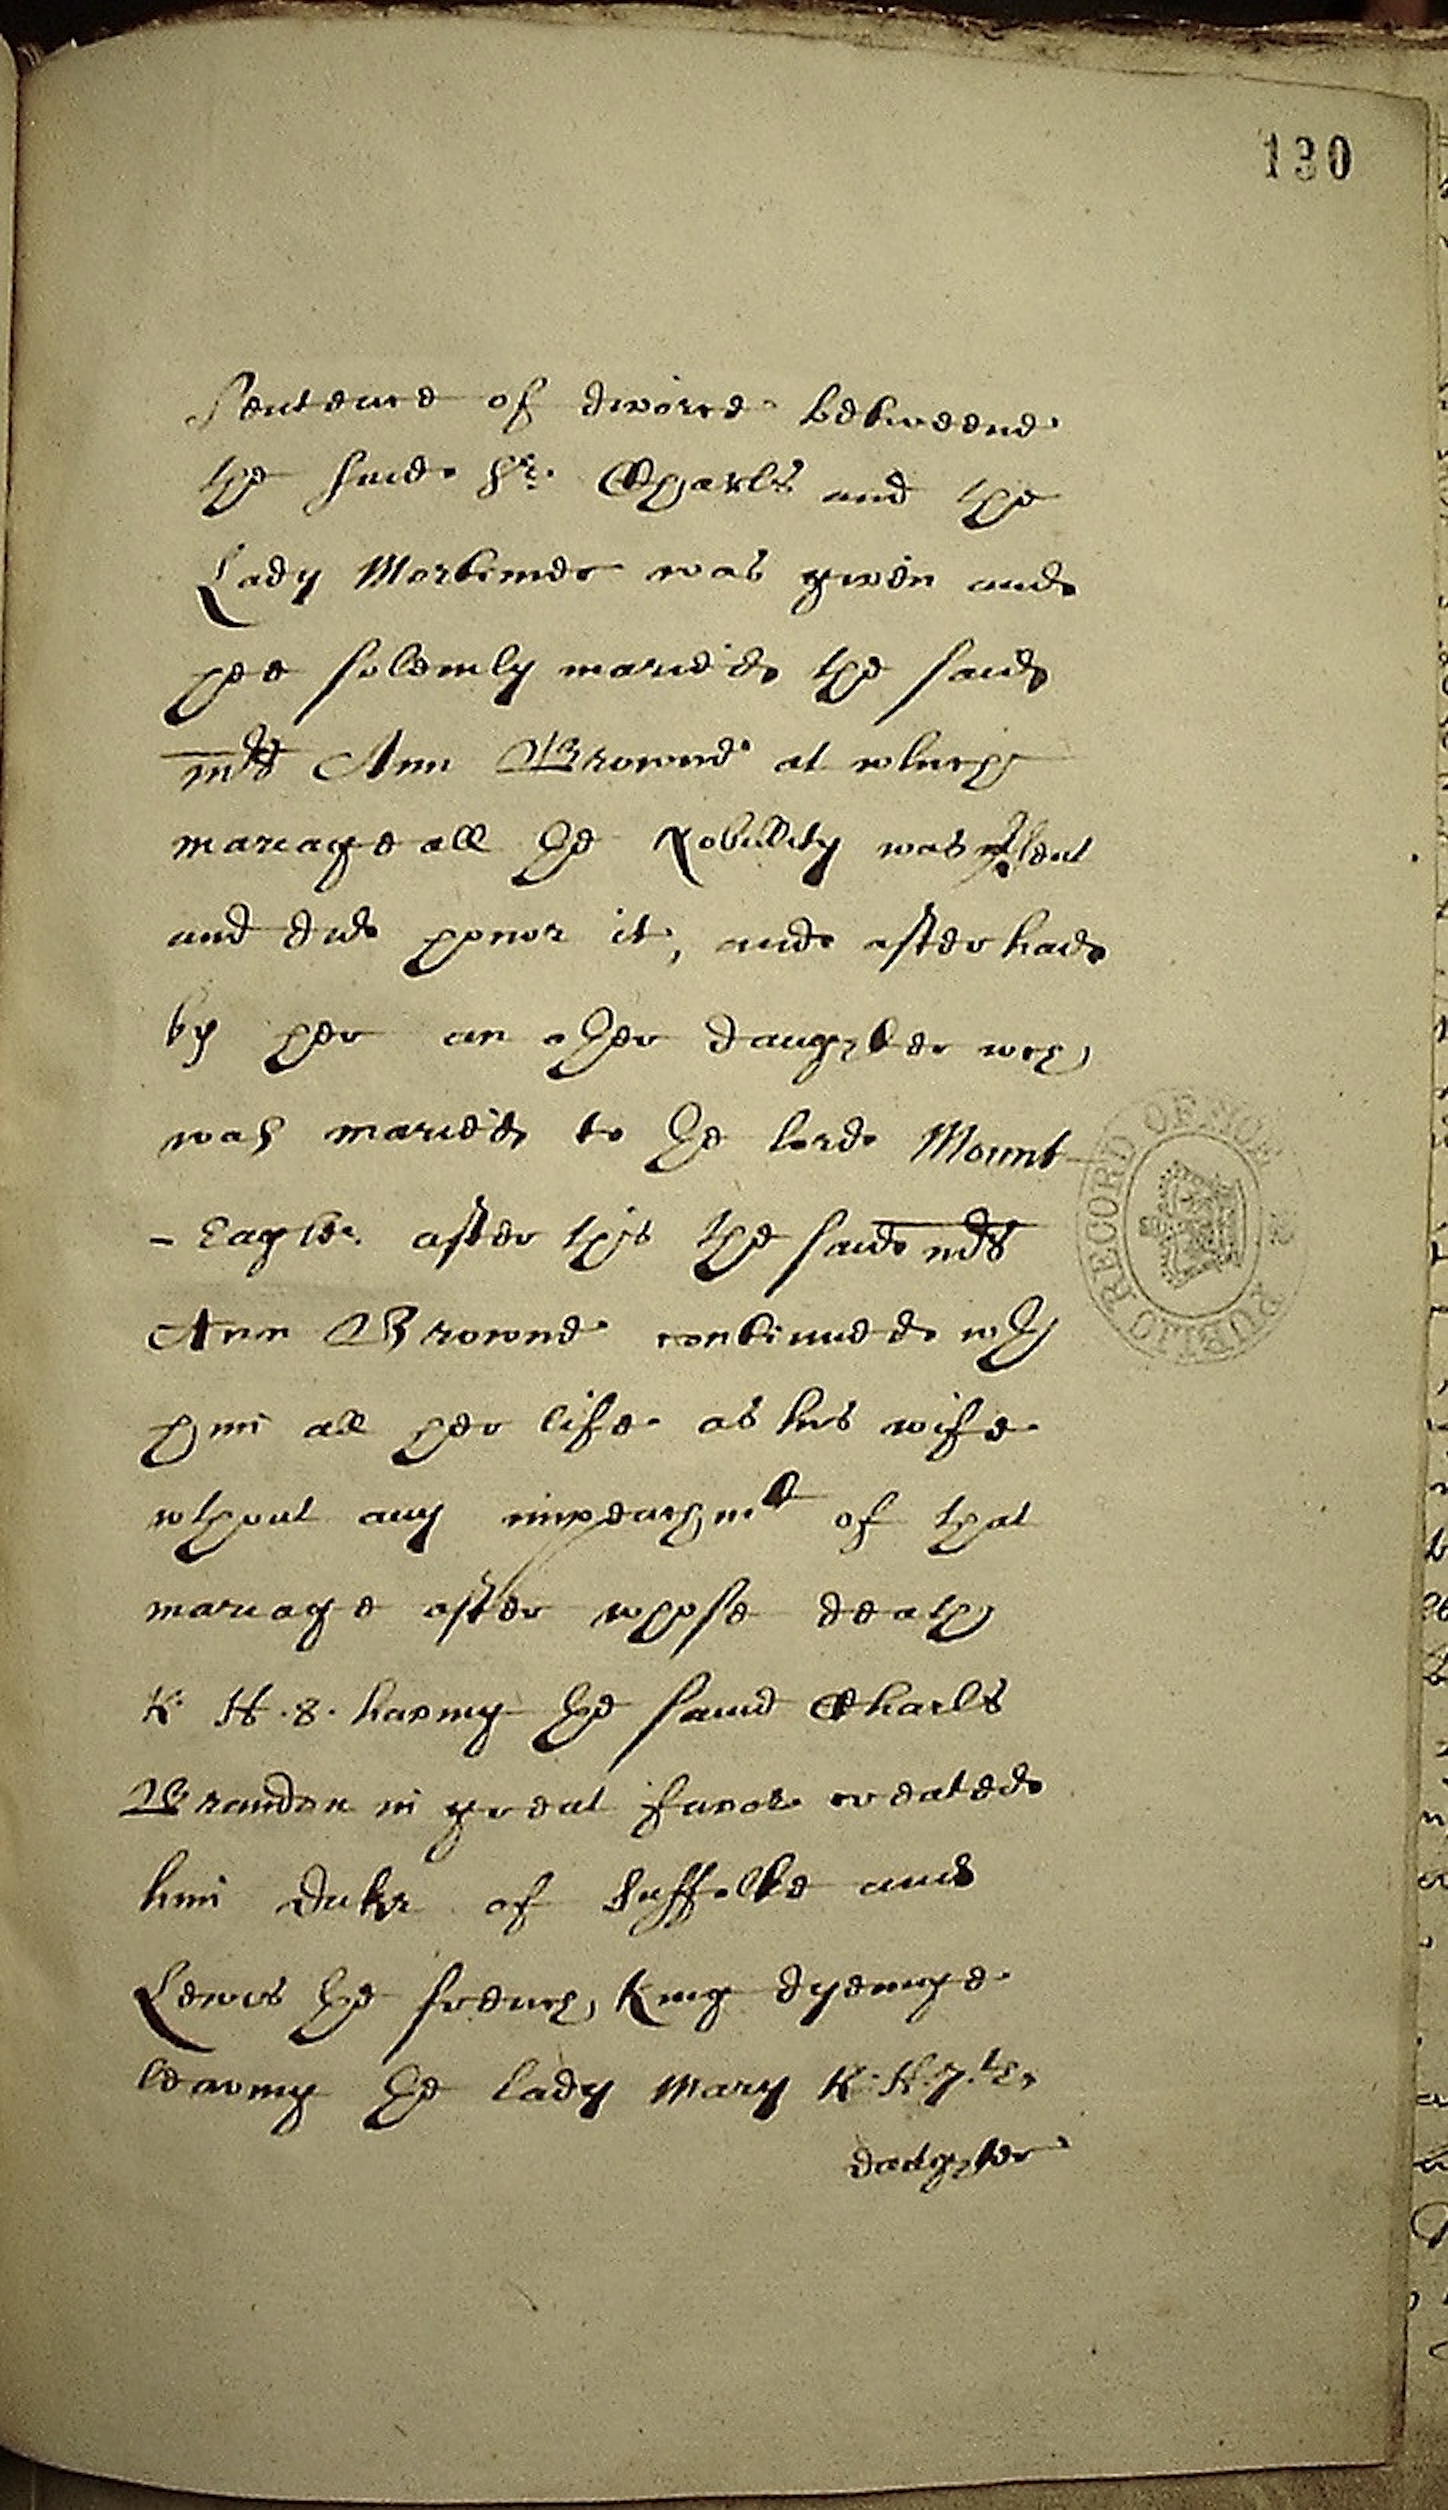 130
Sentence of divorce betweene
the saide Sr. Charls and the
Lady Mortimer was given and
hee solemly maried the said
mrs Ann Browne at which
mariage all the Nobillity was psent
and did honor it, and after had
by her an other daughter wch
was maried to the lord Mount
- Eagle. after this the said mrs
Ann Browne continued wth
him all her life as his wife
wthout any impeachmt of that
mariage after whose death
K H. 8. having the saind Charls
Brandon in great favor created
him Duke of Suffolke and
Lewis the french King dyeinge
leaving the lady Mary K. H. 7. ts.
daughter
PUBLIC RECORD OFFICE